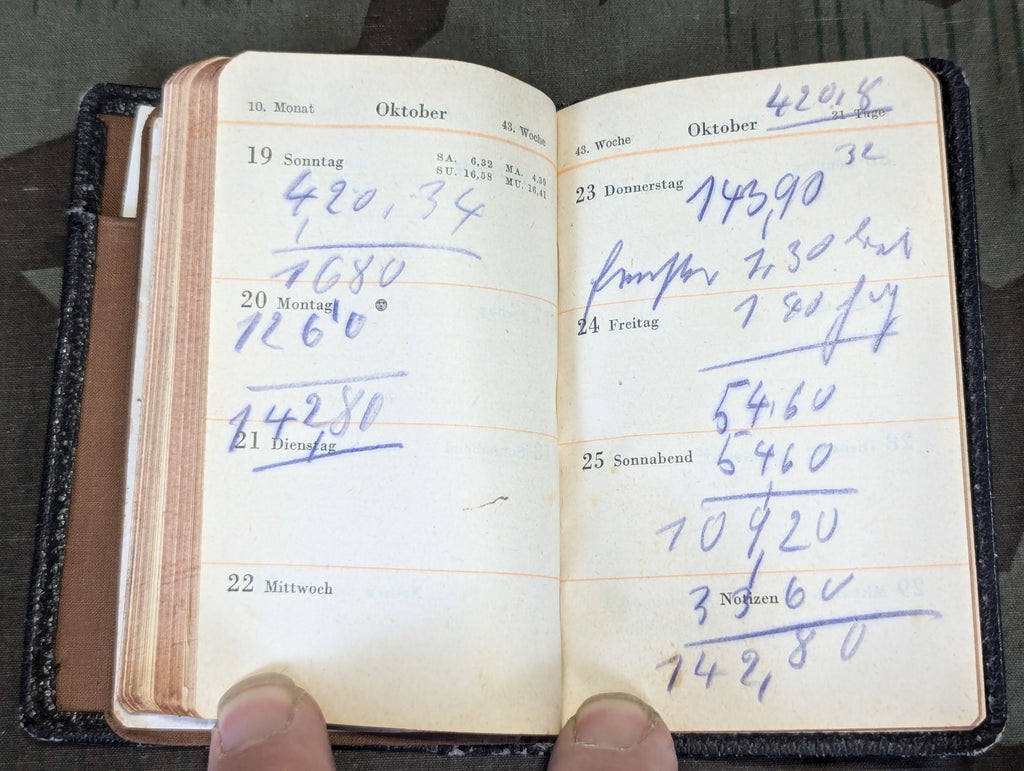 10. Monat Oktober 43. Woche
19 Sonntag
SA. 6,32 MA. 4,39
SU. 16,58 MU. 16,41
420,34
1680
20 Montag
1260
14280
21 Dienstag
22 Mittwoch
420,
43. Woche Oktober 21 Tage
32
23 Donnerstag 143,90
1,30
24 Freitag
1 80
54,60
25 Sonnabend 5460
10920
Notizen
33 60
142,80